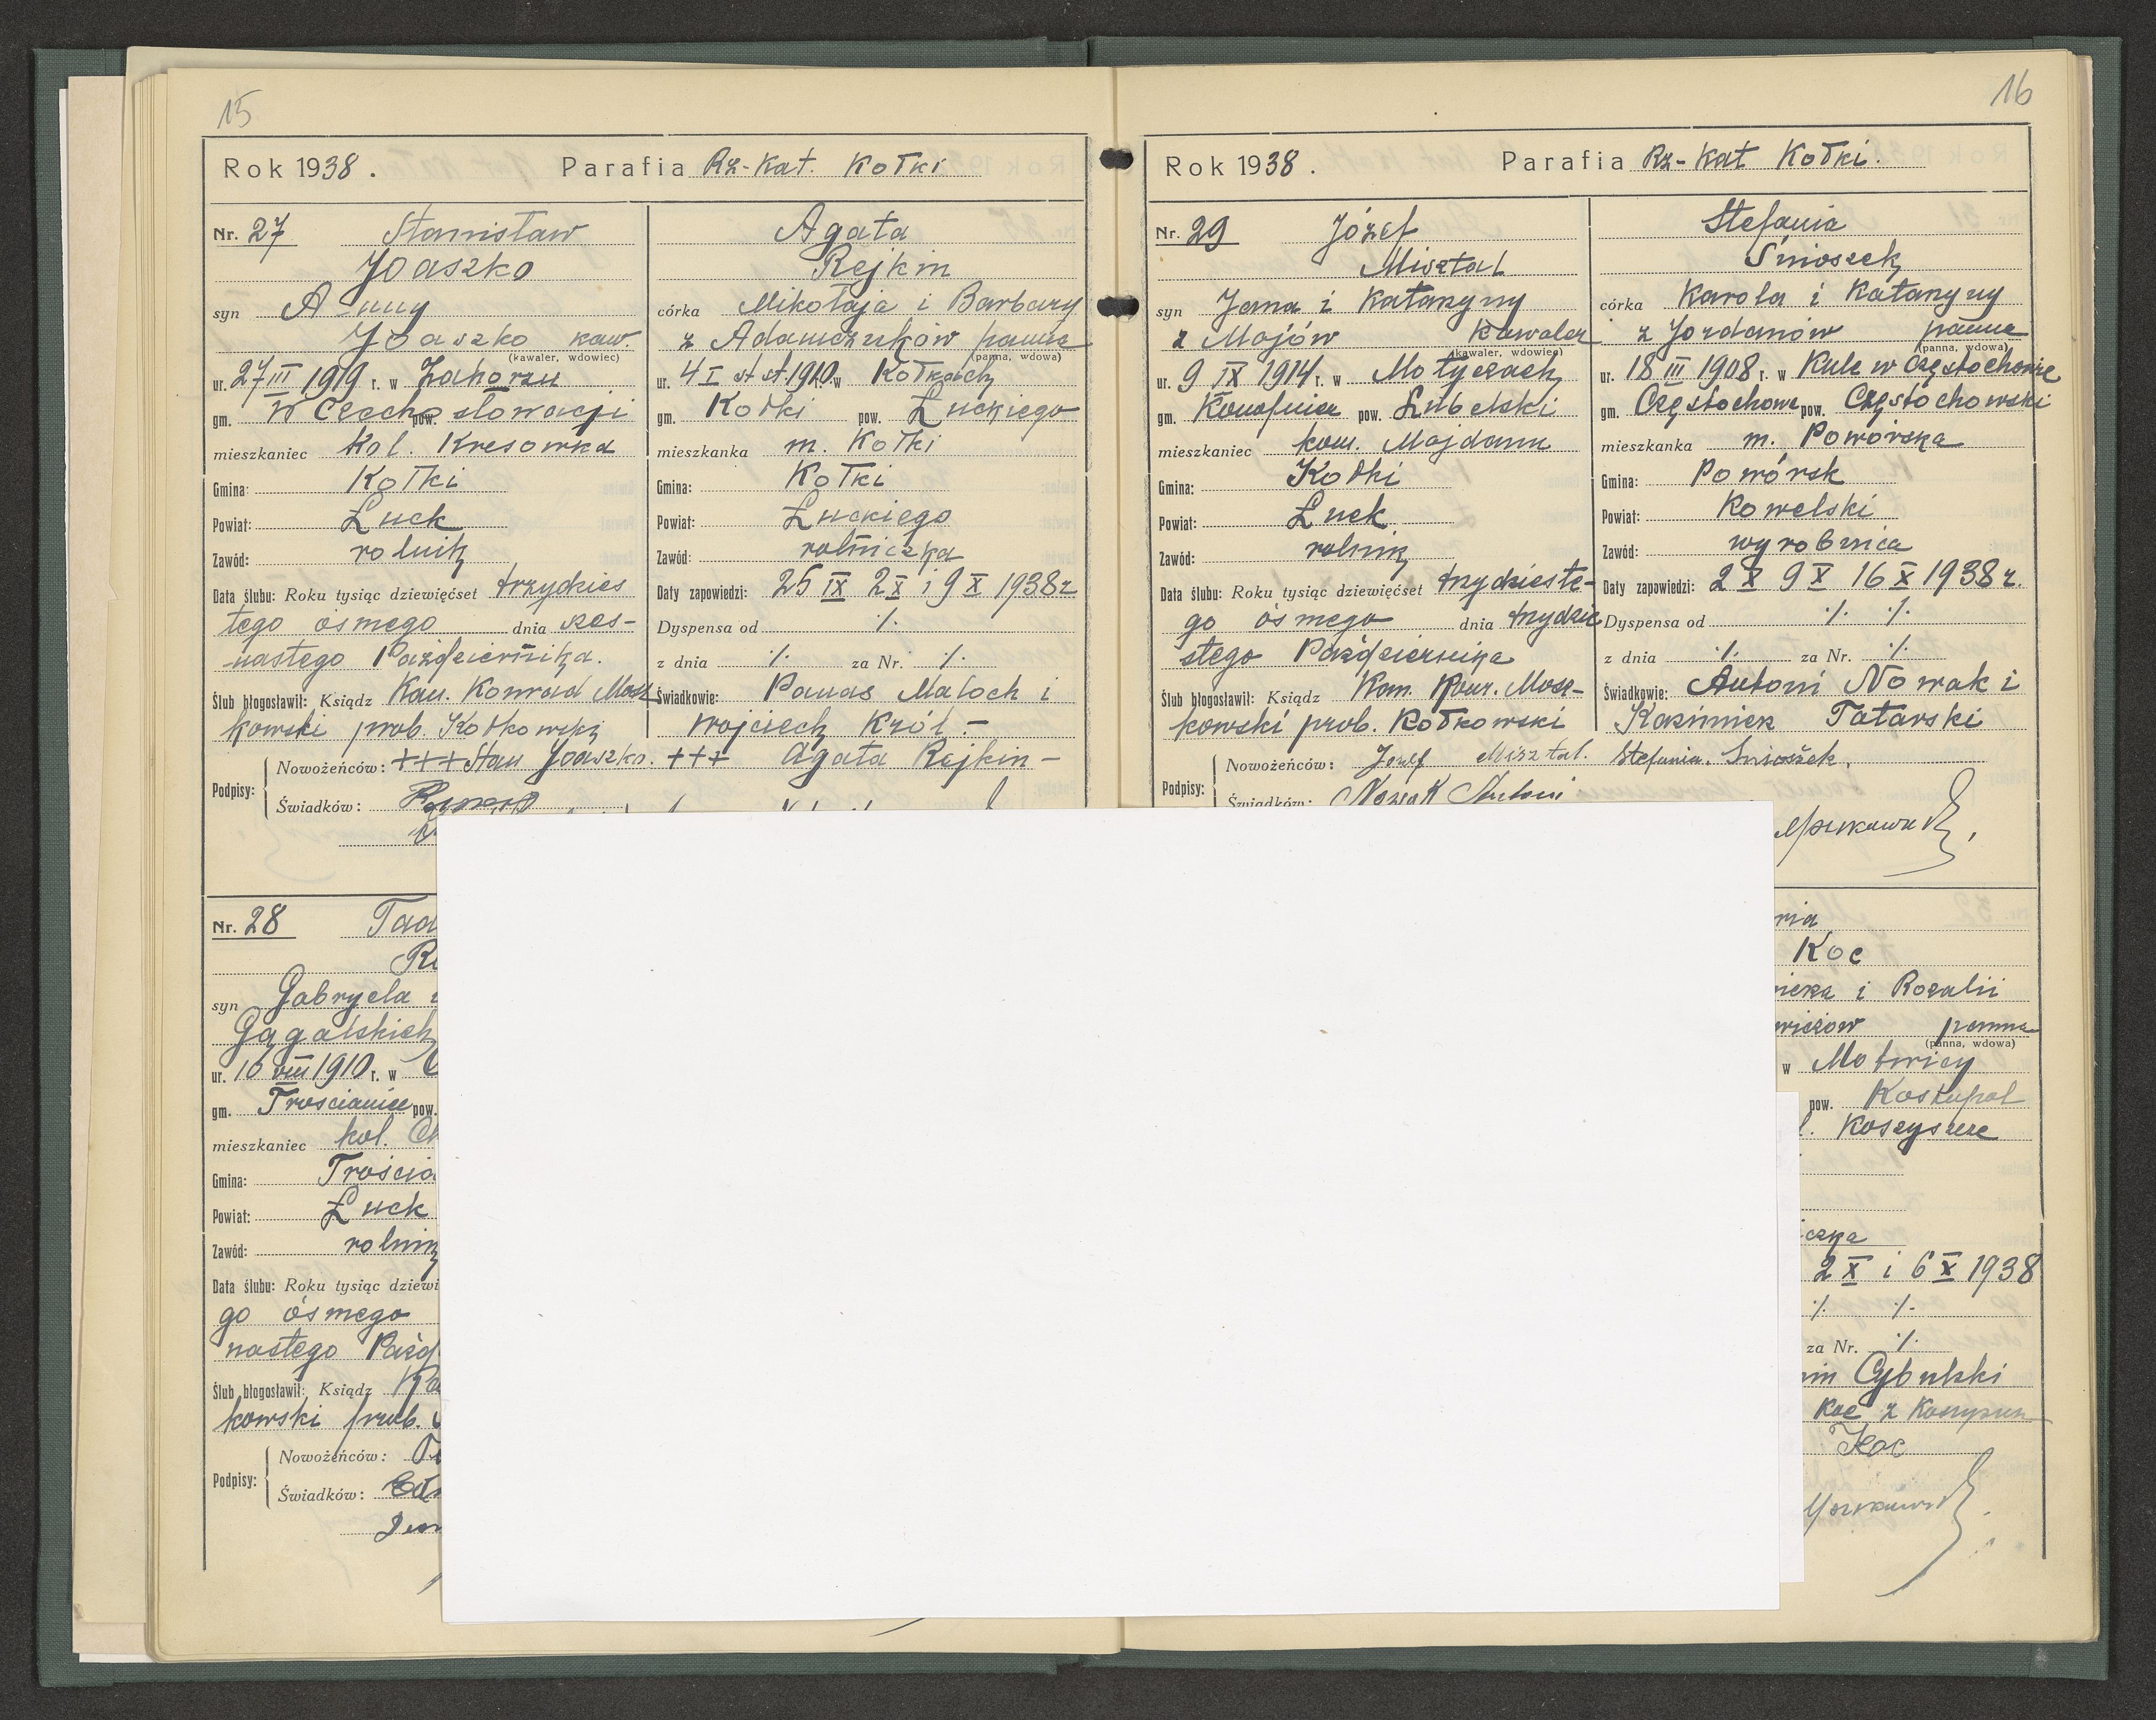 15
Rok 1938. Parafia Rz-Kat. Kołki
Nr. 27 Stanisław
Joaszko
syn Anny
Joaszko kaw.
(kawaler, wdowiec)
ur. 27 III 1919 r. w Zahorzu
gm. W Czechosłowacji pow.
mieszkaniec Kol. Kresowka
Gmina: Kołki
Powiat: Łuck
Zawód: rolnik
Data ślubu: Roku tysiąc dziewięćset trzydzies
tego ósmego dnia szes-
nastego Października.
Ślub błogosławił: Ksiądz Kan. Konrad Mosz
kowski prob. Kołkowski
Agata
Rejkin
córka Mikołaja i Barbary
z Adamczuków panna
(panna, wdowa)
ur. 4 I st st. 1910 w Kołkach
gm. Kołki pow. Łuckiego
mieszkanka m. Kołki
Gmina: Kołki
Powiat: Łuckiego
Zawód: rolniczka
Daty zapowiedzi: 25 IX 2 X i 9 X 1938 r
Dyspensa od ·/.
z dnia ·/. za Nr. ·/.
Świadkowie: Panas Matoch i
Wojciech Król -
Podpisy: Nowożeńców: +++ Stan Joaszko. +++ Agata Rejkin -
Świadków:
Nr. 28 Tad
syn Gabryela
Gągalskich
ur. 10 VIII 1910 r. w
gm. Trościaniec pow.
mieszkaniec kol.
Gmina: Trościa
Powiat: Łuck
Zawód: rolnik
Data ślubu: Roku tysiąc dziewi
go ósmego
nastego Paźd
Ślub błogosławił: Ksiądz Ka
kowski prob.
Podpisy: Nowożeńców:
Świadków:
16
Rok 1938. Parafia Rz-Kat Kołki.
Nr. 29 Józef
Misztal
syn Jana i Katarzyny
z Majów Kawaler
(kawaler, wdowiec)
ur. 9 IX 1914 r. w Motyczach
gm. Konopnica pow. Lubelski
mieszkaniec kow. Majdanu
Gmina: Kołki
Powiat: Łuck
Zawód: rolnik
Data ślubu: Roku tysiąc dziewięćset trzydzieste-
go ósmego dnia trzydzie
stego Października
Ślub błogosławił: Ksiądz Kan. Konr. Mosz-
kowski prob. Kołkowski
Stefania
Śnioszek
córka Karola i Katarzyny
z Jordanów panna
(panna, wdowa)
ur. 18 III 1908 r. w Kule w Częstochowie
gm. Częstochowa pow. Częstochowski
mieszkanka m. Poworska
Gmina: Powórsk
Powiat: Kowelski
Zawód: wyrobnica
Daty zapowiedzi: 2 X 9 X 16 X 1938 r.
Dyspensa od ·/. ·/.
z dnia ·/. za Nr. ·/.
Świadkowie: Antoni Nowak i
Kazimierz Tatarski
Podpisy: Nowożeńców: Jozef Misztal. Stefania. Snioszek.
Świadków: Nowak Antoni
ria
Koc
i Rozalii
panna
(panna, wdowa)
w Motwicy
pow. Kostopol
Koszyszcze
iczka
2 X i 6 X 1938
·/. ·/.
za Nr. ·/.
Cybulski
Koc z
Koc